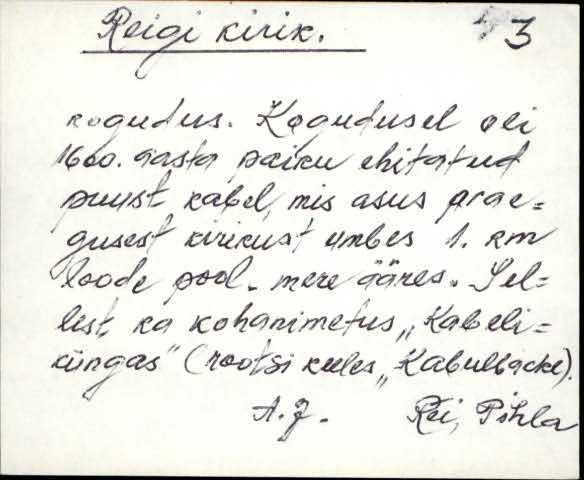 Reigi kirik. 3
kogudus. Kogudusel oli
1600. aasta paiku ehitatud
puust kabel, mis asus prae=
gusest kirikust umbes 1. km
loode pool - mere ääres. Sel=
lest ka kohanimetus „Kabeli=
küngas" (rootsi keeles „Kabulbacke).
A.J. Rei, Pihla